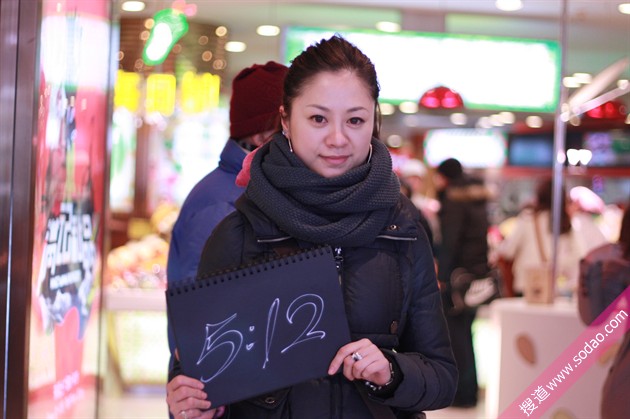 5:12
搜道 www.sodao.com